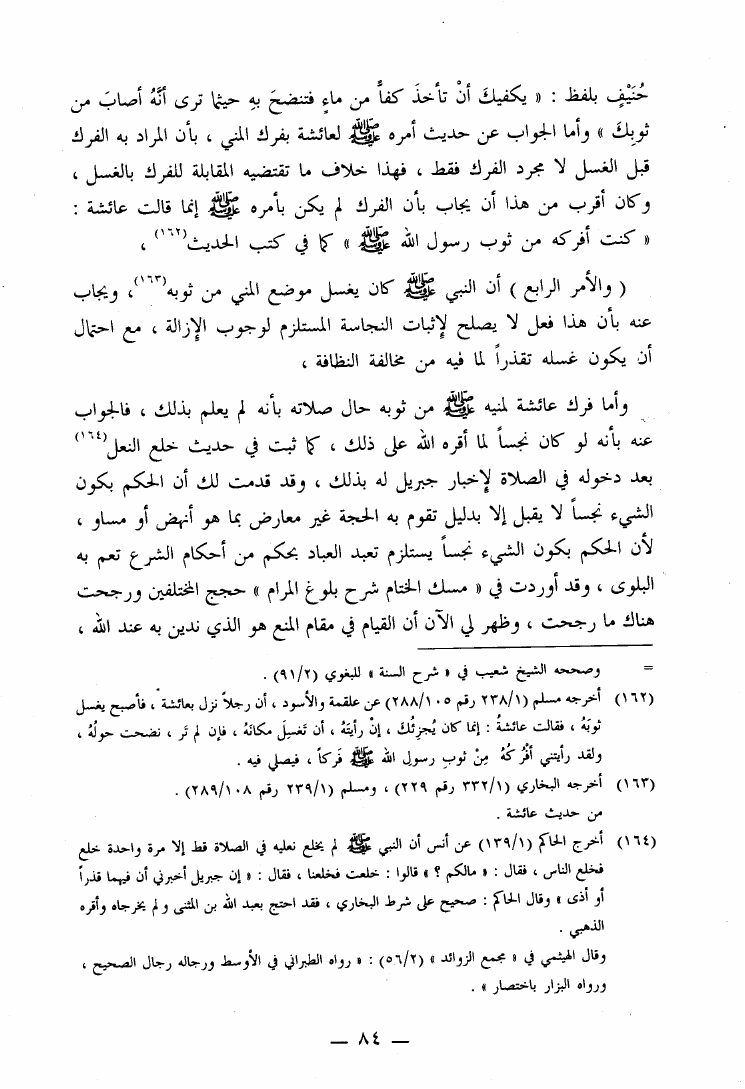 حُنَيْفٍ بلفظ : « يكفيكَ أنْ تأخذَ كفاً من ماءٍ فتنضحَ بهِ حيثما ترى أنَّهُ أصابَ من
ثوبِكَ » وأما الجواب عن حديث أمره ﷺ لعائشة بفرك المني ، بأن المراد به الفرك
قبل الغسل لا مجرد الفرك فقط ، فهذا خلاف ما تقتضيه المقابلة للفرك بالغسل ،
وكان أقرب من هذا أن يجاب بأن الفرك لم يكن بأمره ﷺ إنما قالت عائشة :
« كنت أفركه من ثوب رسول الله ﷺ » كما في كتب الحديث(١٦٢) ،
( والأمر الرابع ) أن النبي ﷺ كان يغسل موضع المني من ثوبه(١٦٣)، ويجاب
عنه بأن هذا فعل لا يصلح لإثبات النجاسة المستلزم لوجوب الإزالة ، مع احتمال
أن يكون غسله تقذراً لما فيه من مخالفة النظافة ،
وأما فرك عائشة لمنيه ﷺ من ثوبه حال صلاته بأنه لم يعلم بذلك ، فالجواب
عنه بأنه لو كان نجساً لما أقره الله على ذلك ، كما ثبت في حديث خلع النعل(١٦٤)
بعد دخوله في الصلاة لإخبار جبريل له بذلك ، وقد قدمت لك أن الحكم بكون
الشيء نجساً لا يقبل إلا بدليل تقوم به الحجة غير معارض بما هو أنهض أو مساو ،
لأن الحكم بكون الشيء نجساً يستلزم تعبد العباد بحكم من أحكام الشرع تعم به
البلوى ، وقد أوردت في « مسك الختام شرح بلوغ المرام » حجج المختلفين ورجحت
هناك ما رجحت ، وظهر لي الآن أن القيام في مقام المنع هو الذي ندين به عند الله ،
= وصححه الشيخ شعيب في « شرح السنة » للبغوي (٩١/٢) .
(١٦٢) أخرجه مسلم (٢٣٨/١ رقم ٢٨٨/١٠٥) عن علقمة والأسود ، أن رجلاً نزل بعائشة ، فأصبح يغسل
ثوبَهُ ، فقالت عائشةُ : إنما كان يُجزئُك ، إنْ رأيتَهُ ، أن تَغسِلَ مكانَهُ ، فإن لم تَر ، نضحت حولُهُ ،
ولقد رأيتني أفْرُكُهُ مِنْ ثوبِ رسولِ الله ﷺ فَركاً ، فيصلي فيه .
(١٦٣) أخرجه البخاري (٣٣٢/١ رقم ٢٢٩) ، ومسلم (٢٣٩/١ رقم ٢٨٩/١٠٨) .
من حديث عائشة .
(١٦٤) أخرج الحاكم (١٣٩/١) عن أنس أن النبي ﷺ لم يخلع نعليه في الصلاة قط إلا مرة واحدة خلع
فخلع الناس ، فقال : « مالكم ؟ » قالوا : خلعت فخلعنا ، فقال : « إن جبريل أخبرني أن فيهما قذراً
أو أذى » وقال الحاكم : صحيح على شرط البخاري ، فقد احتج بعبد الله بن المثنى ولم يخرجاه وأقره
الذهبي .
وقال الهيثمي في « مجمع الزوائد » (٥٦/٢) : « رواه الطبراني في الأوسط ورجاله رجال الصحيح ،
ورواه البزار باختصار » .
— ٨٤ —